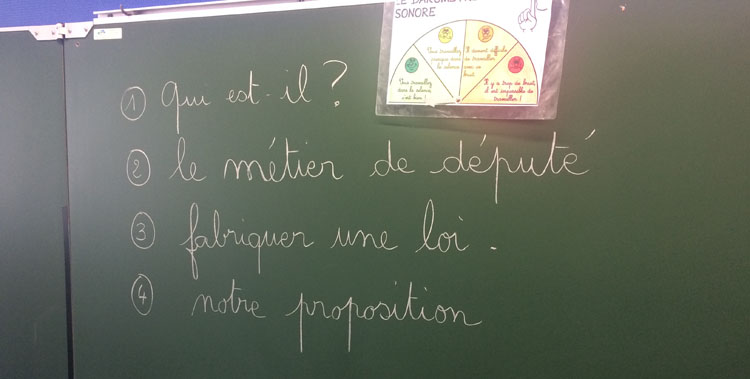 LE BAROMÈTRE
SONORE
Vous travaillez
presque dans
le silence
Il devient difficile
de travailler
avec ce
bruit
Vous travaillez
dans le silence
c'est bien !
Il y a trop de bruit
il est impossible de
travailler !
① qui est-il ?
② le métier de député
③ fabriquer une loi.
④ notre proposition